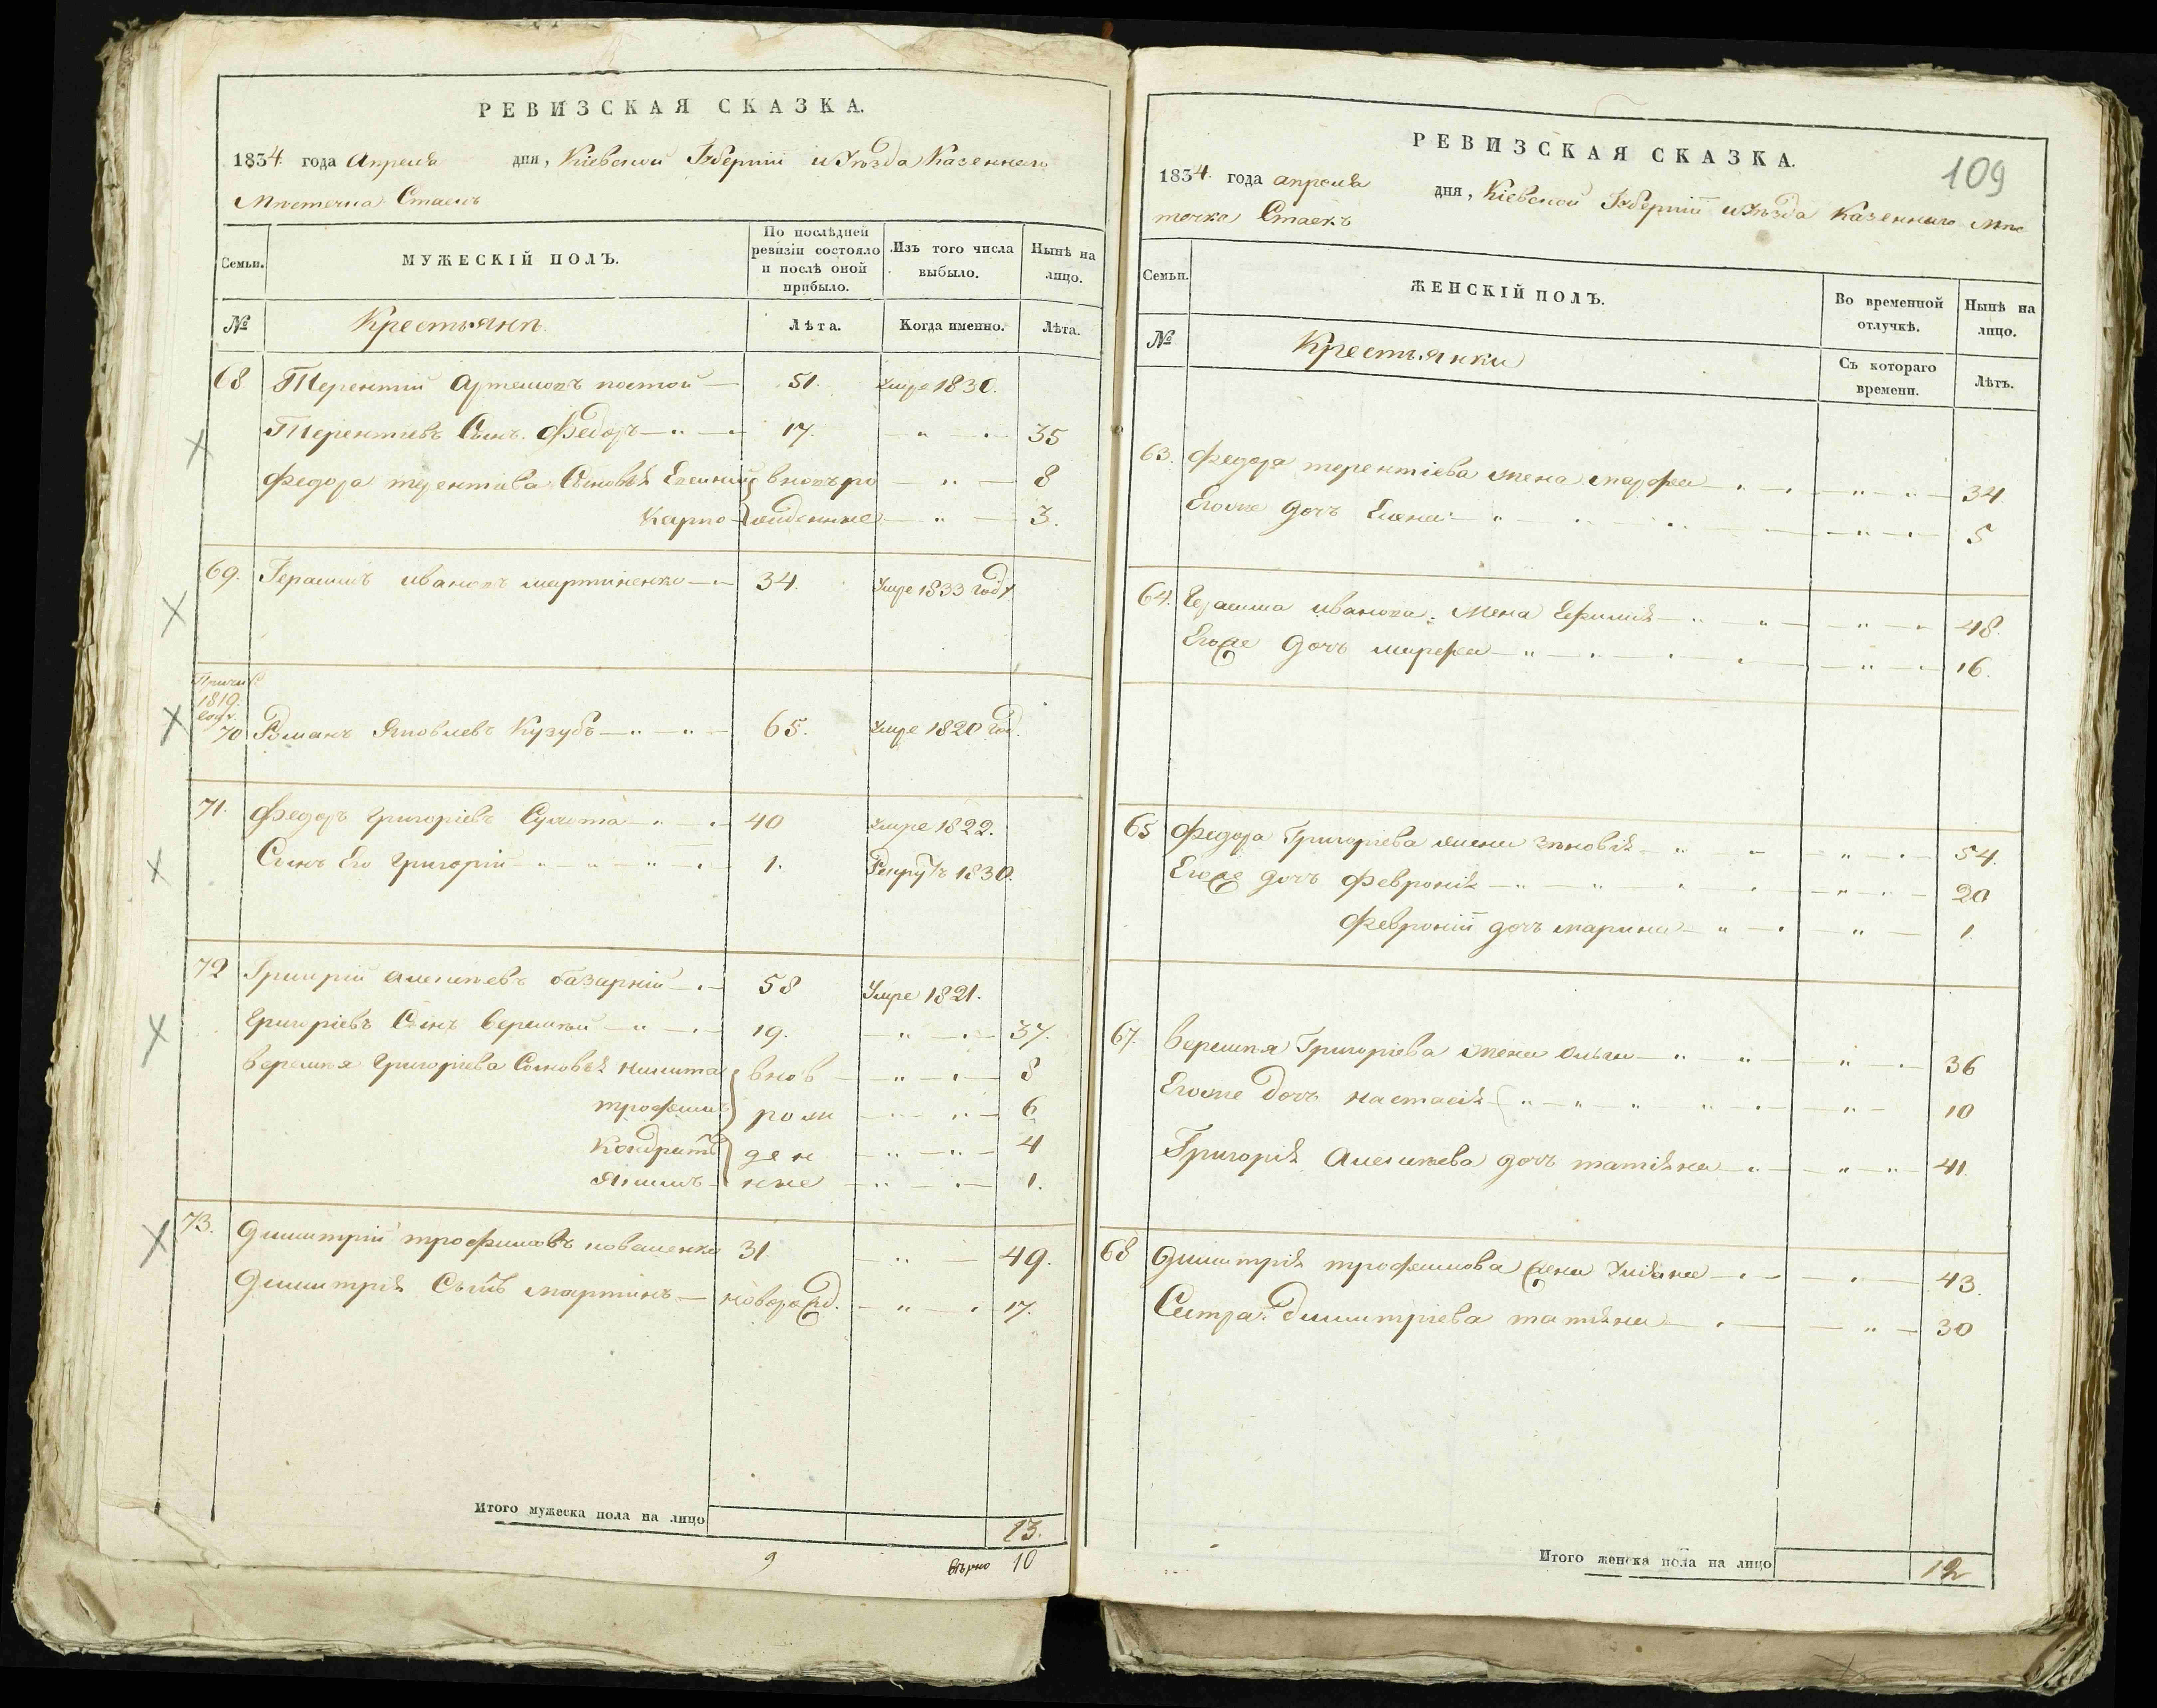 РЕВИЗСКАЯ СКАЗКА.
1834. года Апреля дня, Кіевской Губерніи и Уѣзда Казеннаго
Мѣстечка Стаекъ
Семьи. МУЖЕСКІЙ ПОЛЪ. По послѣдней ревизіи состояло и послѣ оной прибыло. Изъ того числа выбыло. Нынѣ на лицо.
№ Крестьянѣ Лѣта. Когда именно. Лѣта.
68 Терентій Артемовъ 51. умре 1830.
Терентіевъ Сынъ Федоръ 17. 35
Федора терентіева Сыновья вновъро 8
Карпо жденные 3.
69. Герасимъ ивановъ мартиненко 34. Умре 1833 году.
1819.
70 Романъ Яковлевъ Кузубъ 65. Умре 1820 год.
71. Федоръ григоріевъ 40 Умре 1822.
Сынъ Его григорій 1. Рекрутъ 1830.
72 Григорій базарній 58 Умре 1821.
григоріевъ Сынъ веремѣй 19. 37.
веремѣя григоріева Сыновья никита внов 8
трофимъ рож 6
Кондратъ ден 4
Якимъ ные 1.
73. димитрій трофимовъ коваленко 31. 49.
димитрія Сынъ мартинъ новорожд. 17.
Итого мужеска пола на лицо 13.
9 вѣрно 10
109
РЕВИЗСКАЯ СКАЗКА.
1834. года апреля дня, Кіевской Губерніи и Уѣзда Казеннаго Мѣс
течка Стаекъ
Семьи. ЖЕНСКІЙ ПОЛЪ. Во временной отлучкѣ. Нынѣ на лицо.
№ Крестьянки Съ котораго времени. Лѣтъ.
63. Федора терентіева жена марфа 34.
Егоже дочъ Елена 5
64. Герасима иванова жена Ефимія 48.
Егоже дочъ марфа 16.
65 Федора Григоріева жена зѣновія 54.
Егоже дочъ Февронія 20
Февроніи дочъ марина 1.
67. веремѣя Григоріева жена Ольга 36
Егоже дочъ настасія 10
Григорія дочъ татіяна 41.
68 димитрія трофимова жена Уліяна 43.
Сестра димитріева татіяна 30
Итого женска пола на лицо 12